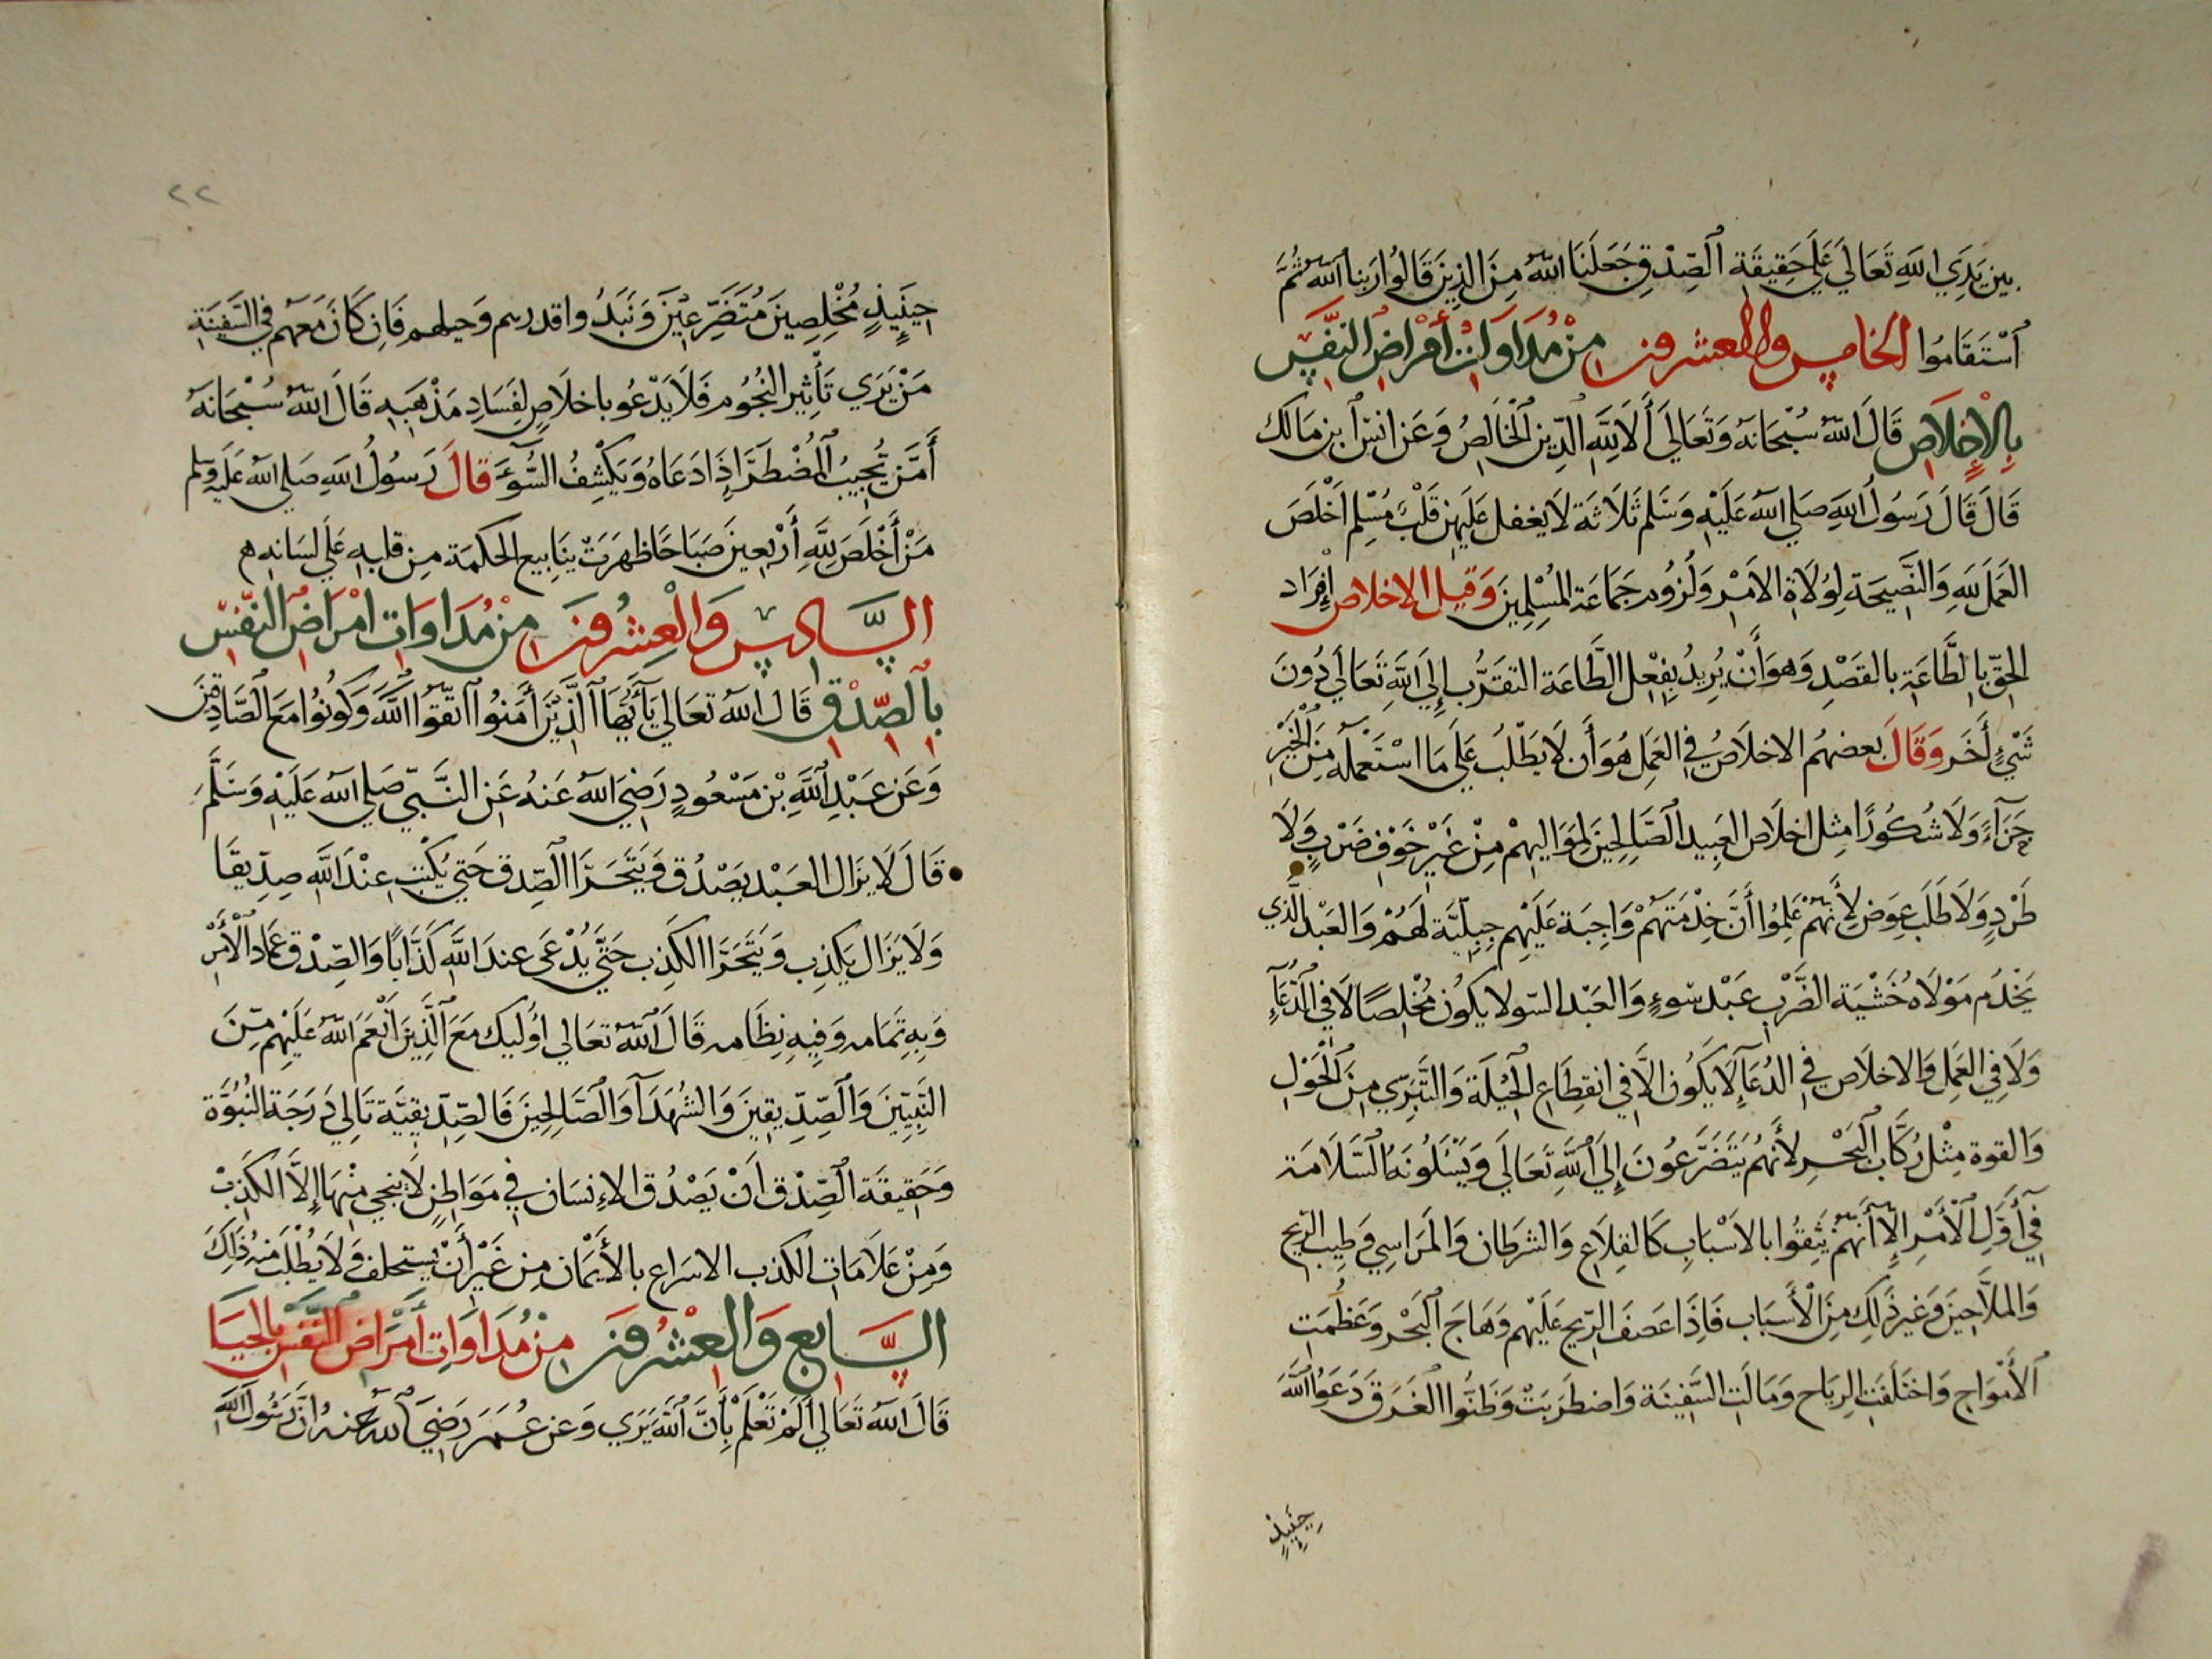 بين يدي الله تعالى علي حقيقة الصدق جعلنا الله من الذين قالوا ربنا الله ثم
استقاموا الخامس والعشرون من مداوات أمراض النفس
بالإخلاص قال الله سبحانه وتعالي ألا لله الدين الخالص وعن انس ابن مالك
قال قال رسول الله صلي الله عليه وسلم ثلاثة لا يغفل عليهن قلب مسلم اخلص
العمل لله والنصيحة لولاة الامر ولزوم جماعة المسلمين وقيل الاخلاص إفراد
الحق بالطاعة بالقصد وهو أن يريد بفعل الطاعة التقرب إلي الله تعالي دون
شيء أخر وقال بعضهم الاخلاص في العمل هو أن لا يطلب علي ما استعمله من الخير
جزآء ولا شكورا مثل اخلاص العبيد الصالحين لمواليهم من غير خوف ضرب ولا
طرد ولا طلب عوض لأنهم علموا أن خدمتهم واجبة عليهم جبلية لهم والعبد الذي
يخدم مولاه خشية الضرب عبد سوء والعبد السو لا يكون مخلصا لا في الدعآء
ولا في العمل والاخلاص في الدعآء لا يكون الا في انقطاع الحيلة والتبري من الحول
والقوة مثل ركاب البحر لأنهم يتضرعون إلي الله تعالي ويسئلونه السلامة
في أول الأمر إلا أنهم يثقوا بالاسباب كالقلاع والشرطان والمراسي وطيب الريح
والملاحين وغير ذلك من الأسباب فإذا عصف الريح عليهم وهاج البحر وعظمت
الأمواج واختلفت الرياح ومالت السفينة واضطربت وظنوا الغرق دعوا الله
حينيذ
٢٢
حينيذ مخلصين متضرعين ونبذوا قدرهم وحيلهم فان كان معهم في السفينة
من يري تأثير النجوم فلا يدعو باخلاص لفساد مذهبه قال الله سبحانه
أمن يجيب المضطر إذا دعاه ويكشف السوء قال رسول الله صلي الله عليه وسلم
من أخلص لله أربعين صباحا ظهرت ينابيع الحكمة من قلبه علي لسانه هم
السادس والعشرون من مداوات امراض النفس
بالصدق قال الله تعالي يآأيها الذين أمنوا اتقوا الله وكونوا مع الصادقين
وعن عبد الله بن مسعود رضي الله عنه عن النبي صلي الله عليه وسلم
قال لا يزال العبد يصدق ويتحرا الصدق حتي يكتب عند الله صديقا
ولا يزال يكذب ويتحرا الكذب حتي يدعى عند الله كذابا والصدق عماد الأمر
وبه تمامه وفيه نظامه قال الله تعالي اوليك مع الذين أنعم الله عليهم من
النبيين والصديقين والشهدآ والصالحين فالصديقية تالي درجة النبوة
وحقيقة الصدق ان يصدق الإنسان في مواطن لا ينجي منها إلا الكذب
ومن علامات الكذب الاسراع بالأيمان من غير أن يستحلف ولا يطلب منه ذلك
السابع والعشرون من مداوات أمراض النفس بالحيا
قال الله تعالي ألم تعلم بأن الله يري وعن عمر رضي الله عنه ان رسول الله